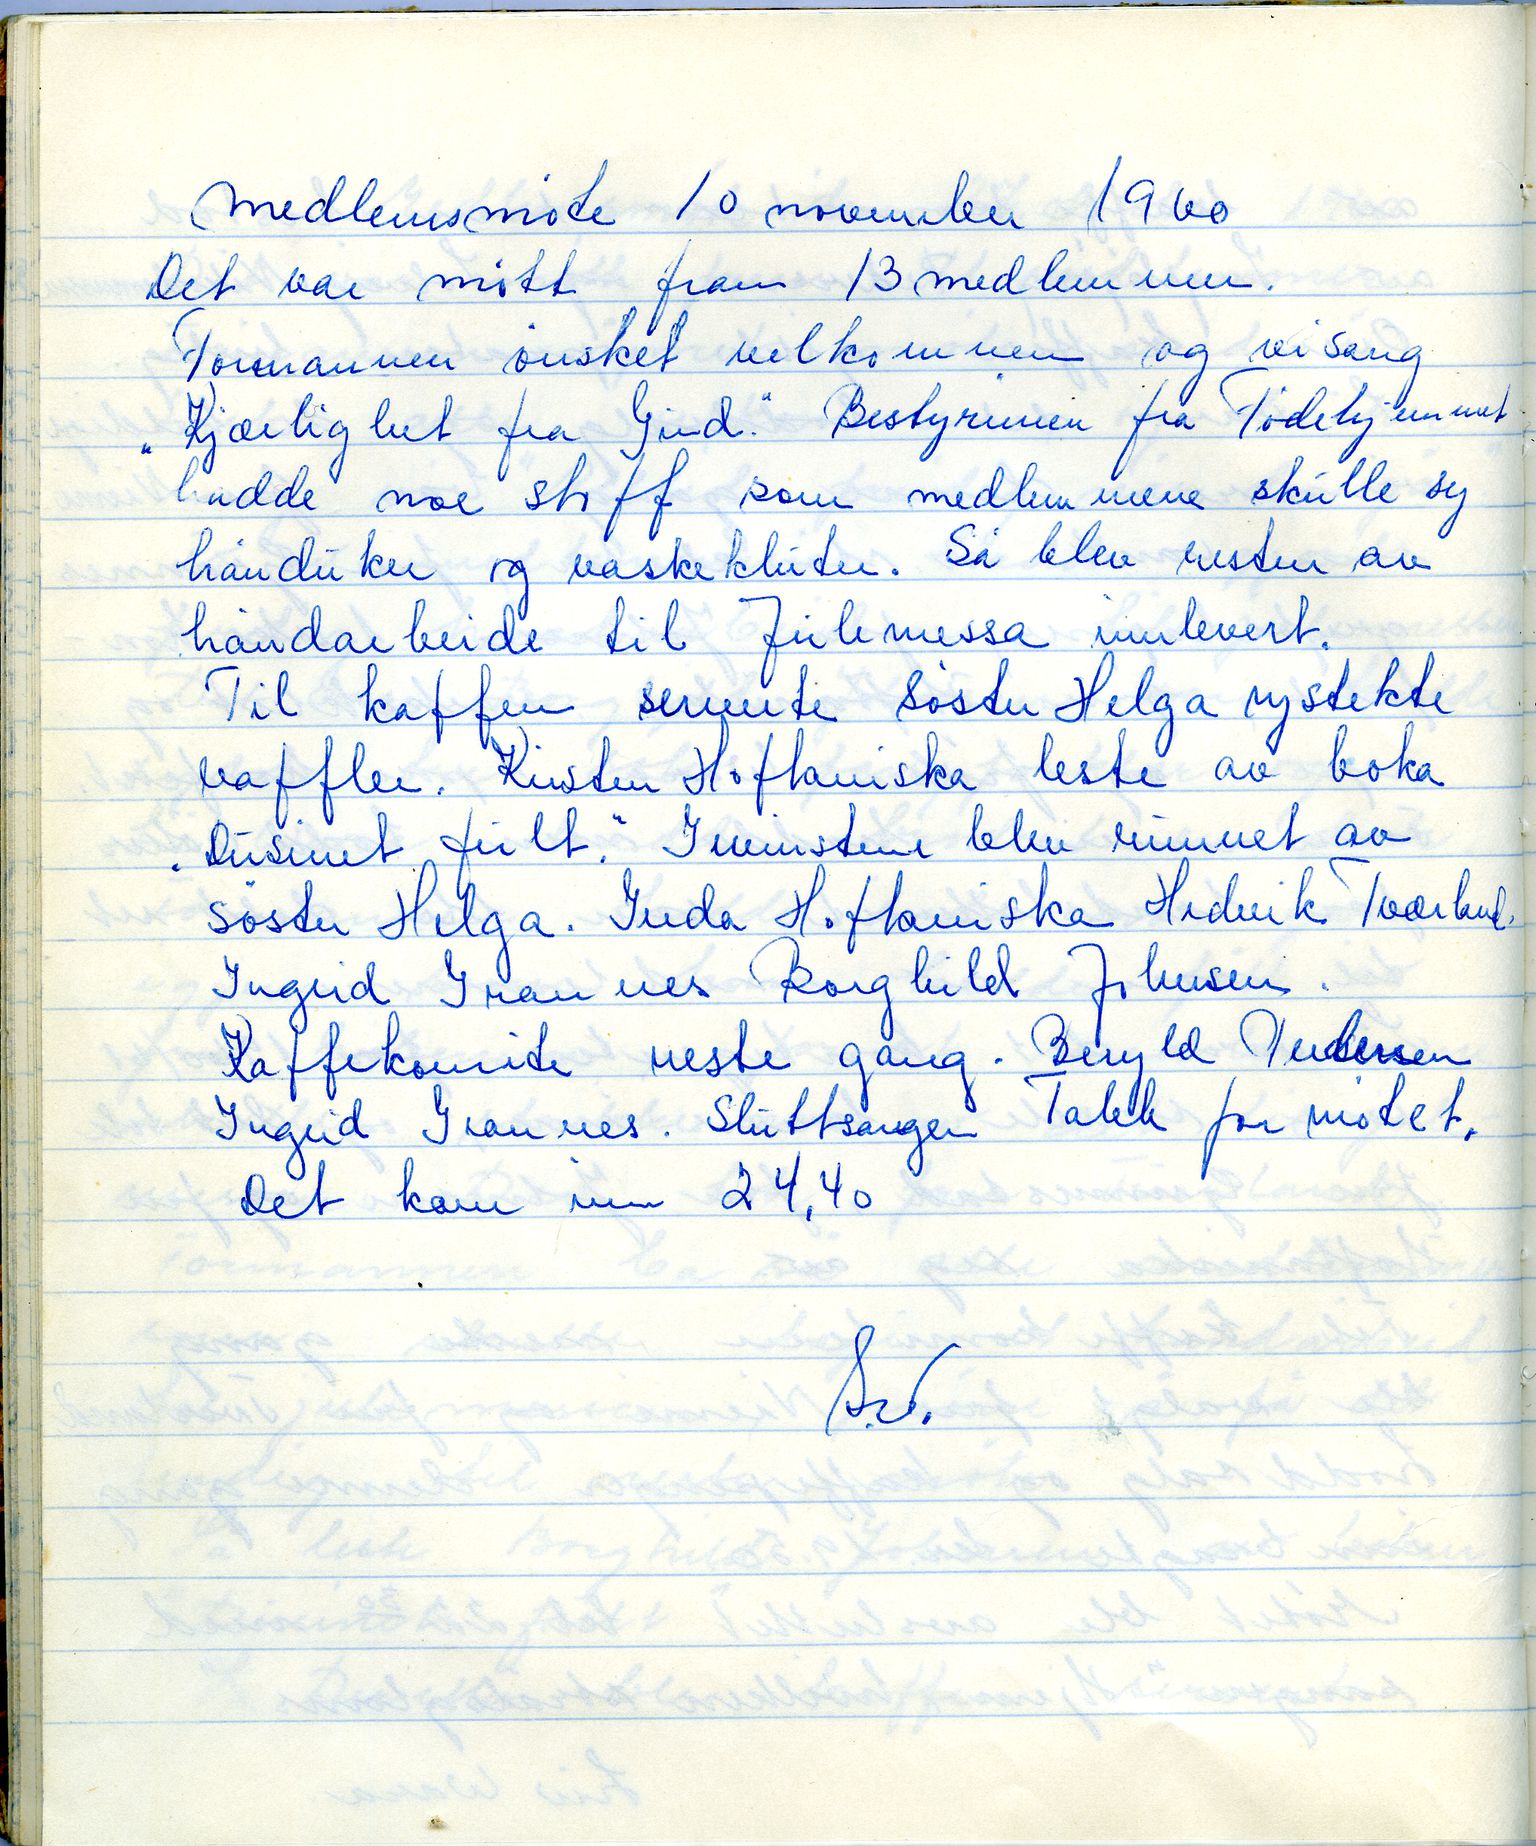 Medlemsmöte 10 november 1960
Det var mött fram 13 medlemmer.
Formannen önsket velkommen og vi sang
„Kjærlighet fra Gud." Bestyrinnen fra Födehjemmet
hadde noe stoff som medlemmene skulle sy
hånduker og vaskekluter. Så blev resten av
håndarbeide til Julemessa innlevert.
Til kaffen serverte söster Helga nystekte
vafler. Kirsten Hoftaniska leste av boka
„Dusinet fullt." Gevinstene blev vunnet av
söster Helga. Gerda Hoftaniska Hedvik Tværland.
Ingrid Grannes Borghild Johnsen.
Kaffekomite neste gang. Beryld Pedersen
Ingrid Grannes. Sluttsangen Takk for mötet.
Det kom inn 24,40
S.W.